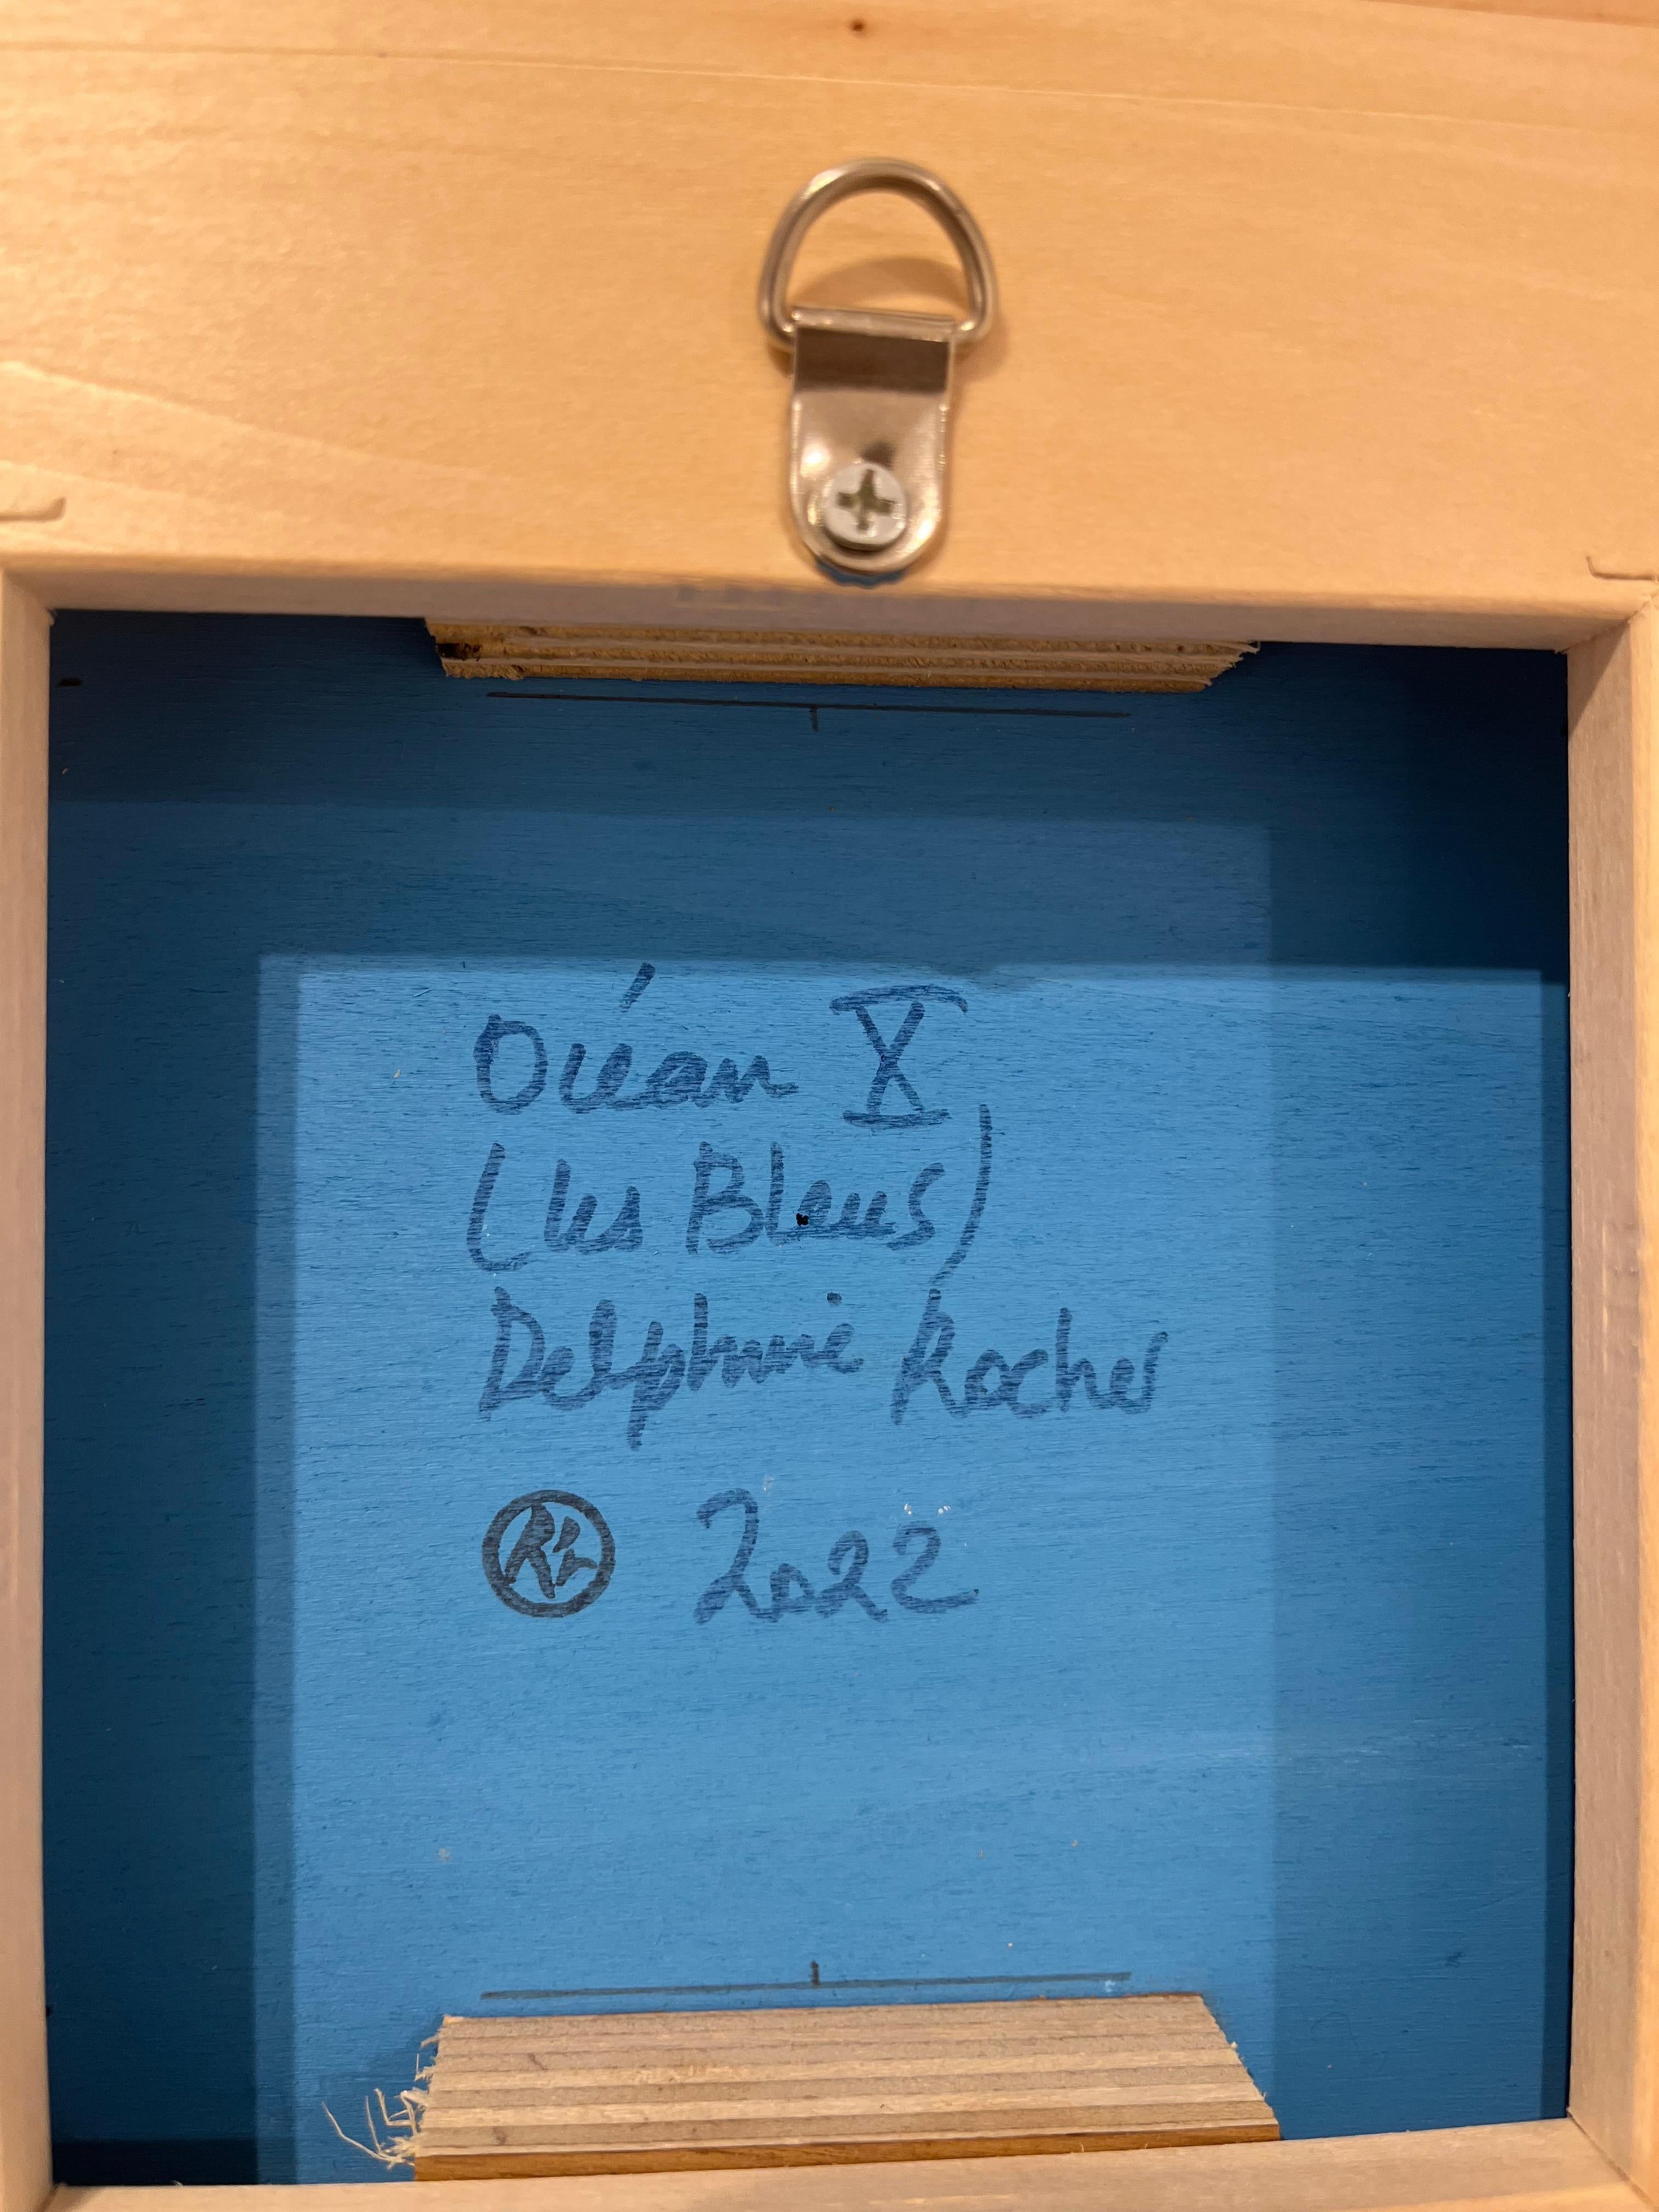 Océan X
(les Bleus)
Delphine Rocher
2022